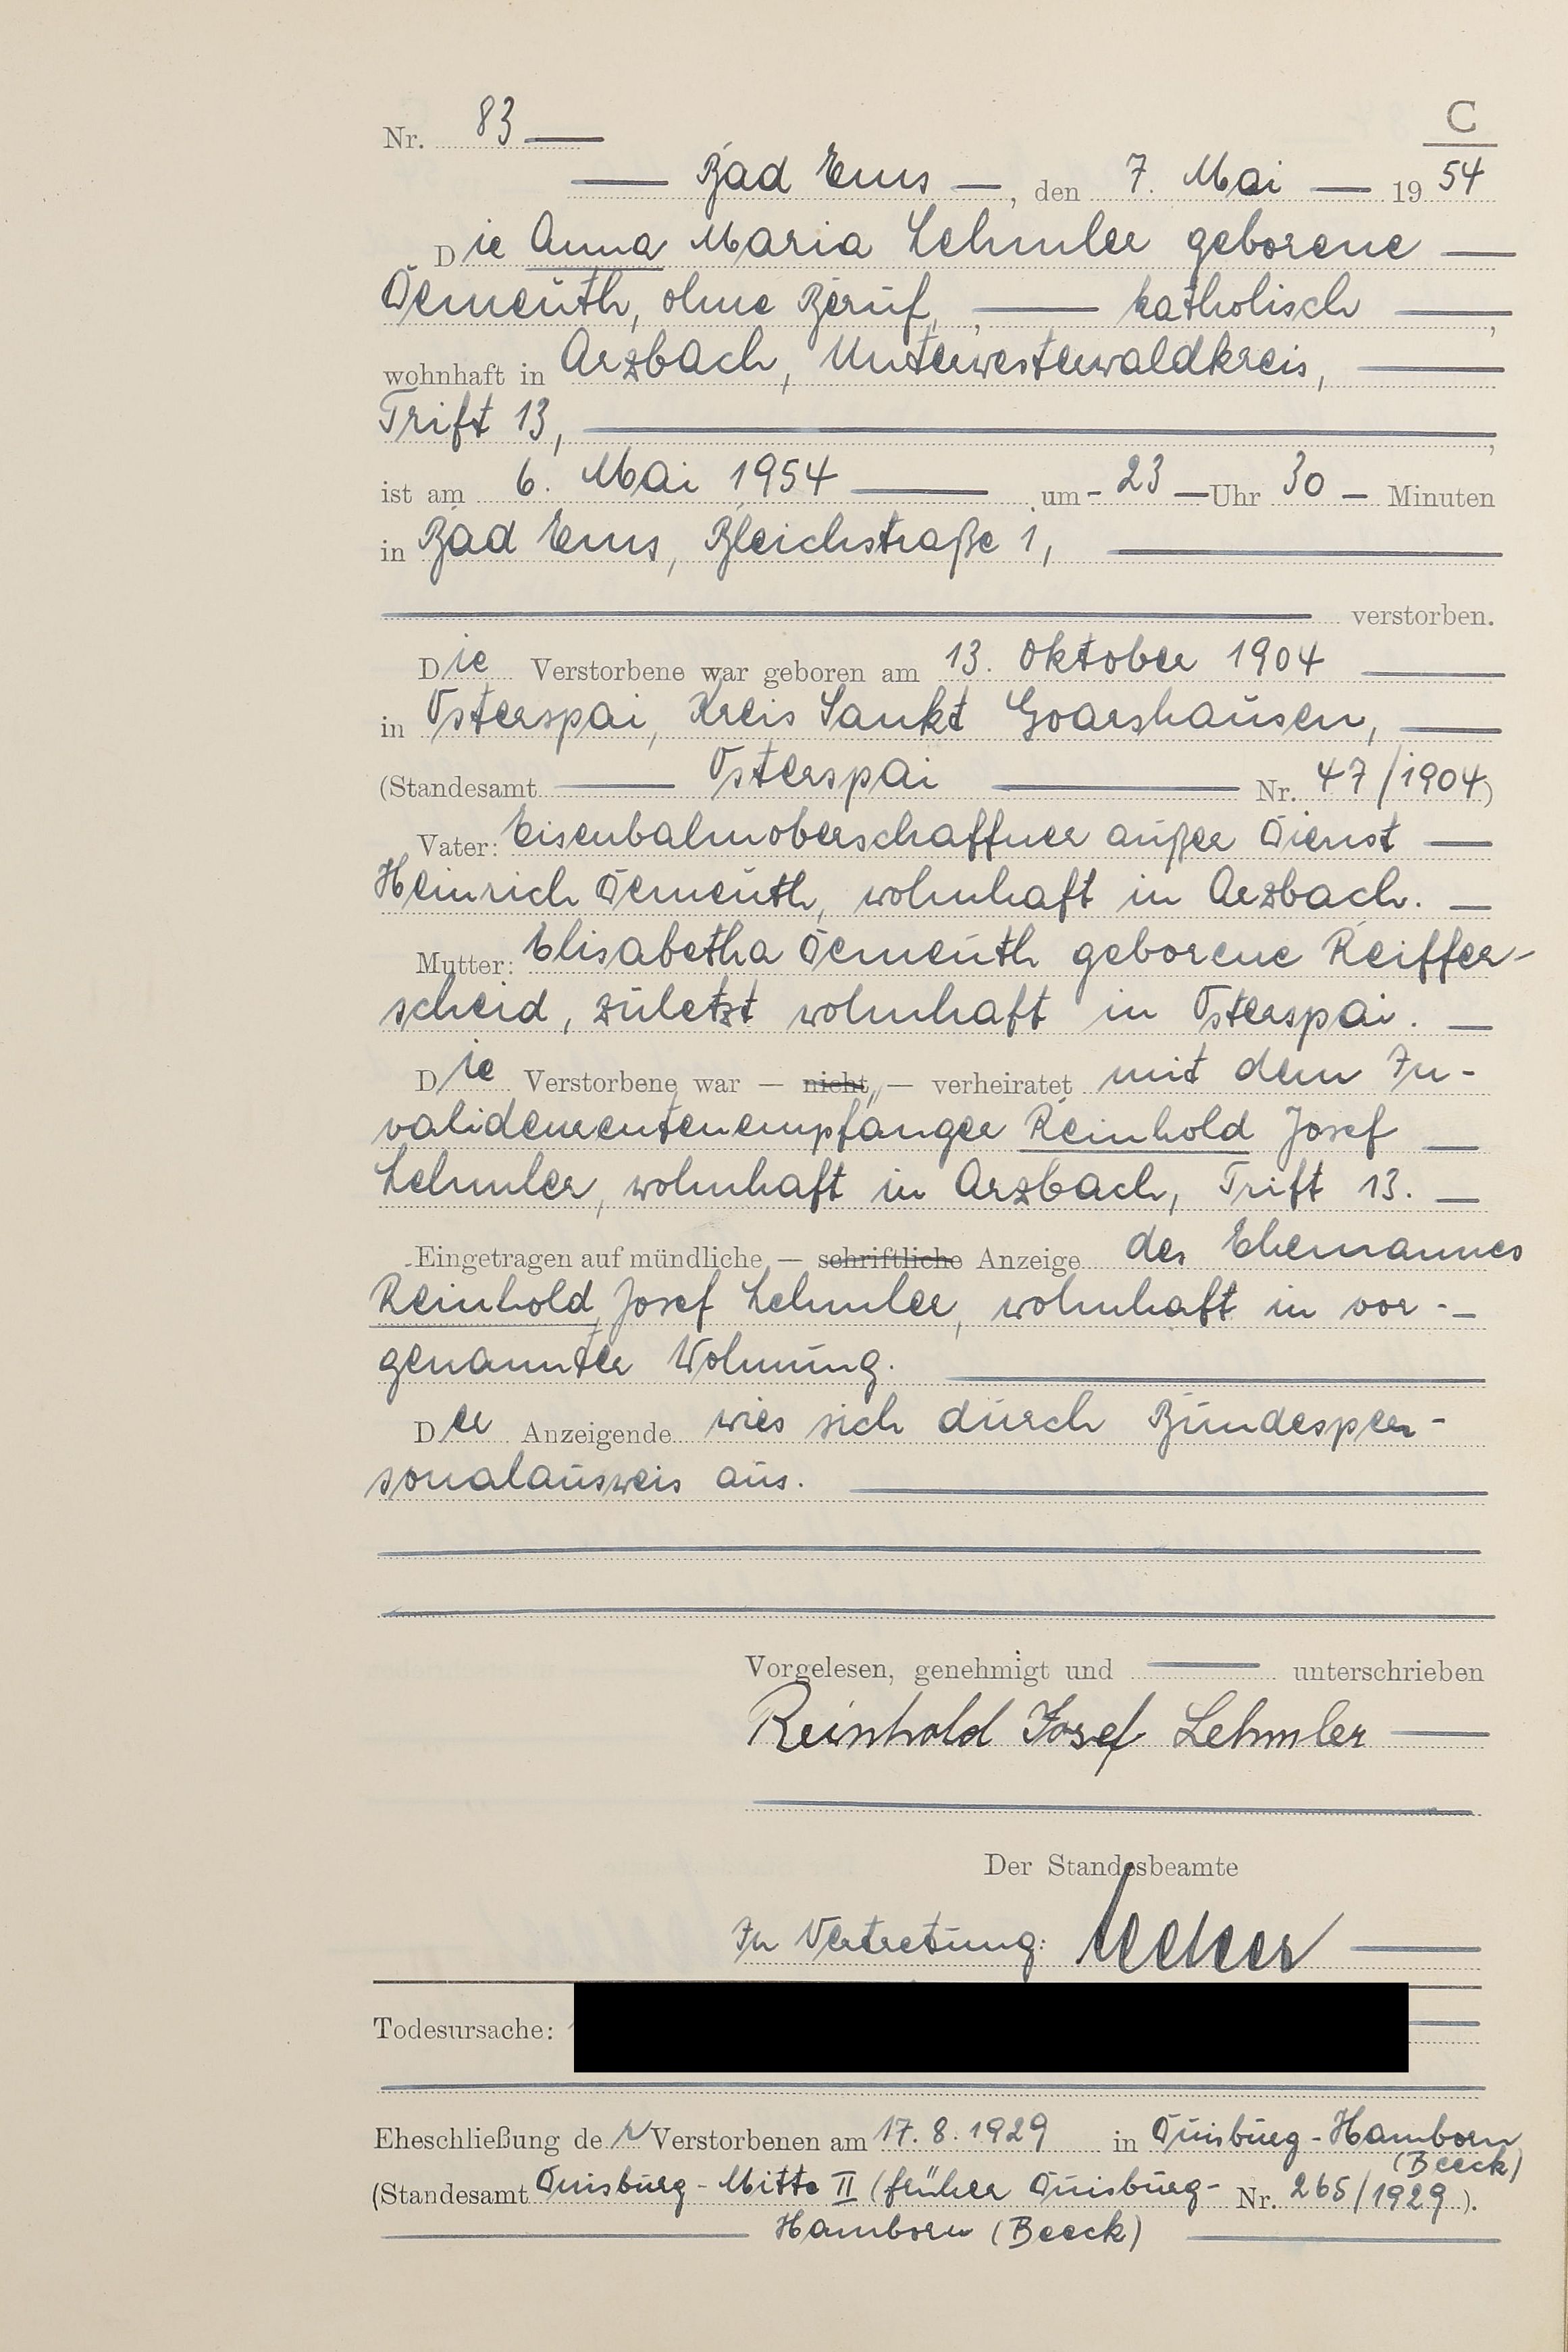 C
Nr. 83 —
— Bad Ems —, den 7. Mai — 19 54
Die Anna Maria Lehmler geborene —
Demeuth, ohne Beruf, — katholisch —,
wohnhaft in Arzbach, Unterwesterwaldkreis, —
Trift 13, —,
ist am 6. Mai 1954 — um - 23 — Uhr 30 — Minuten
in Bad Ems, Bleichstraße 1, —
— verstorben.
Die Verstorbene war geboren am 13. Oktober 1904 —
in Osterspai, Kreis Sankt Goarshausen, —
(Standesamt — Osterspai — Nr. 47/1904)
Vater: Eisenbahnoberschaffner außer Dienst —
Heinrich Demeuth, wohnhaft in Arzbach. —
Mutter: Elisabetha Demeuth geborene Reiffer-
scheid, zuletzt wohnhaft in Osterspai. —
Die Verstorbene war — nicht — verheiratet mit dem In-
validenrentenempfänger Reinhold Josef —
Lehmler, wohnhaft in Arzbach, Trift 13. —
Eingetragen auf mündliche — schriftliche Anzeige des Ehemannes
Reinhold Josef Lehmler, wohnhaft in vor- —
genannter Wohnung. —
Der Anzeigende wies sich durch Bundesper-
sonalausweis aus. —
Vorgelesen, genehmigt und — unterschrieben
Reinhold Josef Lehmler —
Der Standesbeamte
In Vertretung: —
Todesursache:
Eheschließung der Verstorbenen am 17. 8. 1929 in Duisburg-Hamborn
(Beeck)
(Standesamt Duisburg-Mitte II (früher Duisburg- Nr. 265/1929).
— Hamborn (Beeck) —